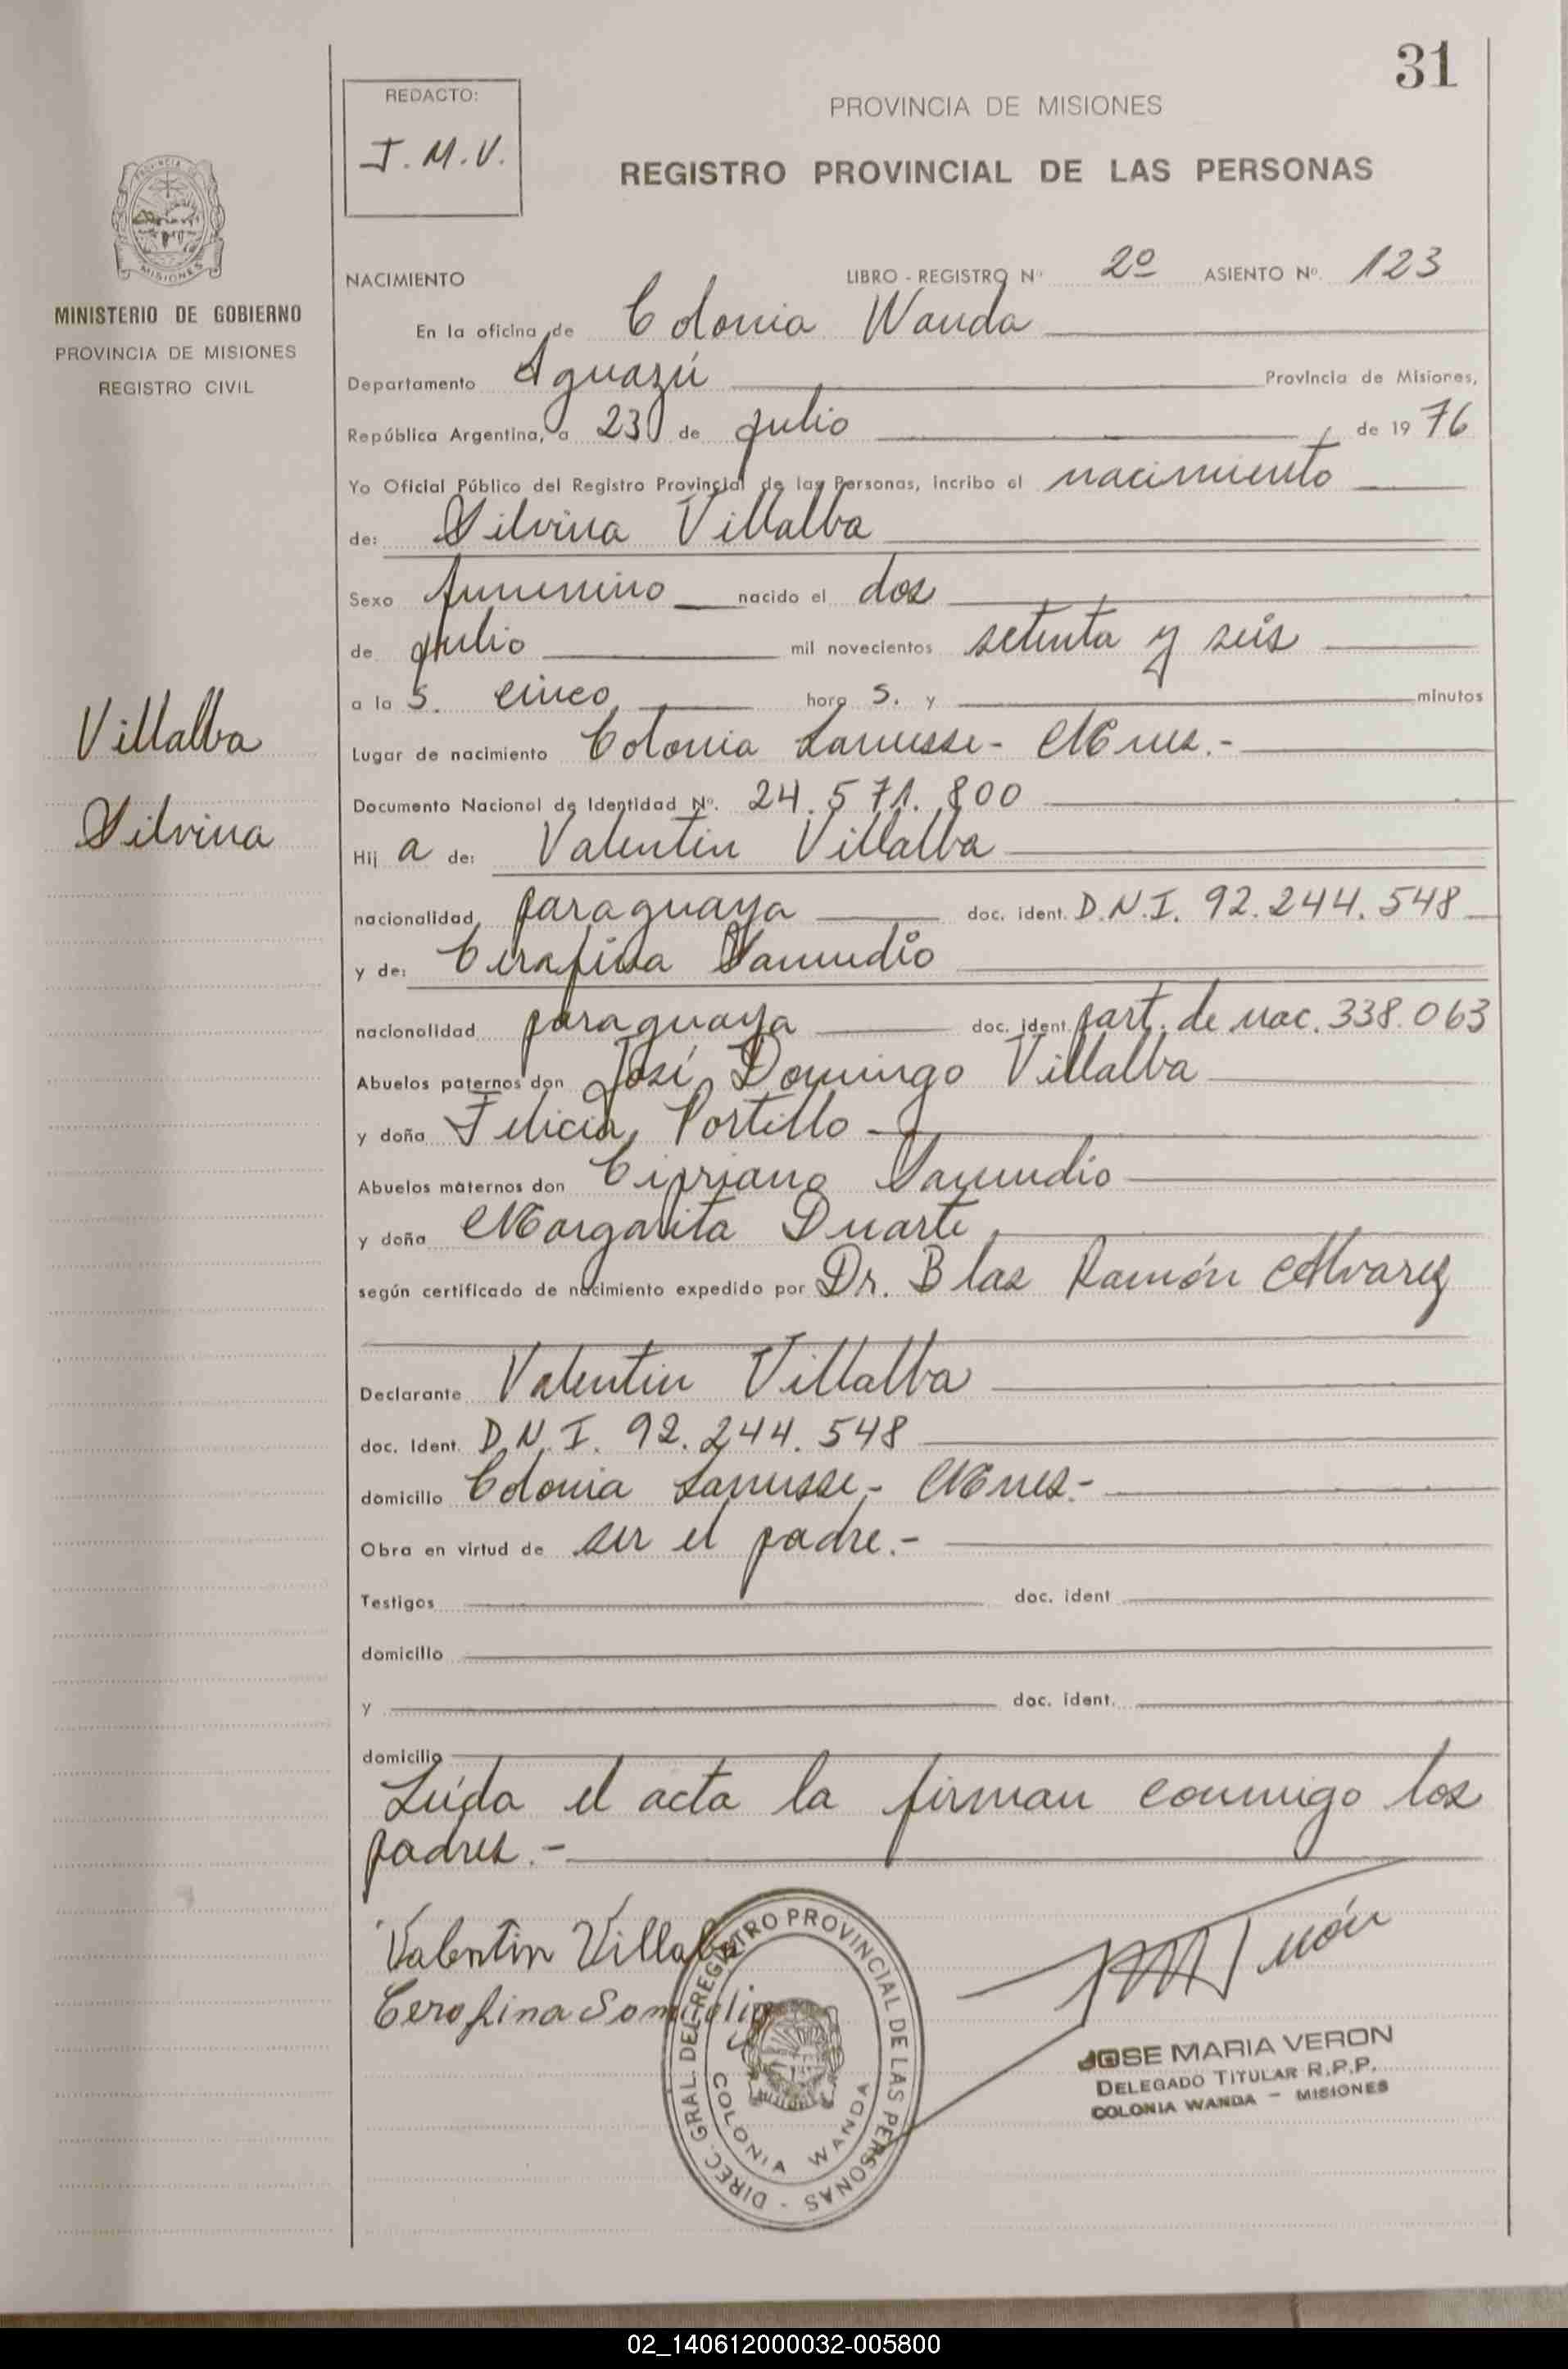 31
REDACTO:
J. M. V.
PROVINCIA DE MISIONES
REGISTRO PROVINCIAL DE LAS PERSONAS
MISIONES
MINISTERIO DE GOBIERNO
PROVINCIA DE MISIONES
REGISTRO CIVIL
NACIMIENTO LIBRO - REGISTRO Nº 2º ASIENTO Nº. 123
En la oficina de Colonia Wanda
Departamento Iguazú Provincia de Misiones,
República Argentina, a 23 de julio, de 1976
Yo Oficial Público del Registro Provincial de las Personas, incribo el nacimiento
de: Silvina Villalba
Sexo femenino nacido el dos
de julio mil novecientos setenta y seis
a la s. cinco hora s. y minutos
Villalba
Silvina
Lugar de nacimiento Colonia Lanusse - Mnes.-
Documento Nacional de Identidad Nº. 24.571.800
Hij a de: Valentin Villalba
nacionalidad paraguaya doc. ident. D.N.I. 92.244.548
y de: Cerafina Samudio
nacionalidad paraguaya doc. ident. part. de nac. 338.063
Abuelos paternos don José Domingo Villalba
y doña Felicia Portillo
Abuelos maternos don Cipriano Samudio
y doña Margarita Duarte
según certificado de nacimiento expedido por Dr. Blas Ramón Alvarez
Declarante Valentin Villalba
doc. Ident. D.N.I. 92.244.548
domicilio Colonia Lanusse - Mnes.-
Obra en virtud de ser el padre.-
Testigos doc. ident
domicilio
y doc. ident.
domicilio
Leída el acta la firman conmigo los
padres.-
Valentin Villalba
Cerafina Samudio
DIREC. GRAL. DEL REGISTRO PROVINCIAL DE LAS PERSONAS -
COLONIA WANDA
JOSE MARIA VERON
DELEGADO TITULAR R.P.P.
COLONIA WANDA - MISIONES
02_140612000032-005800